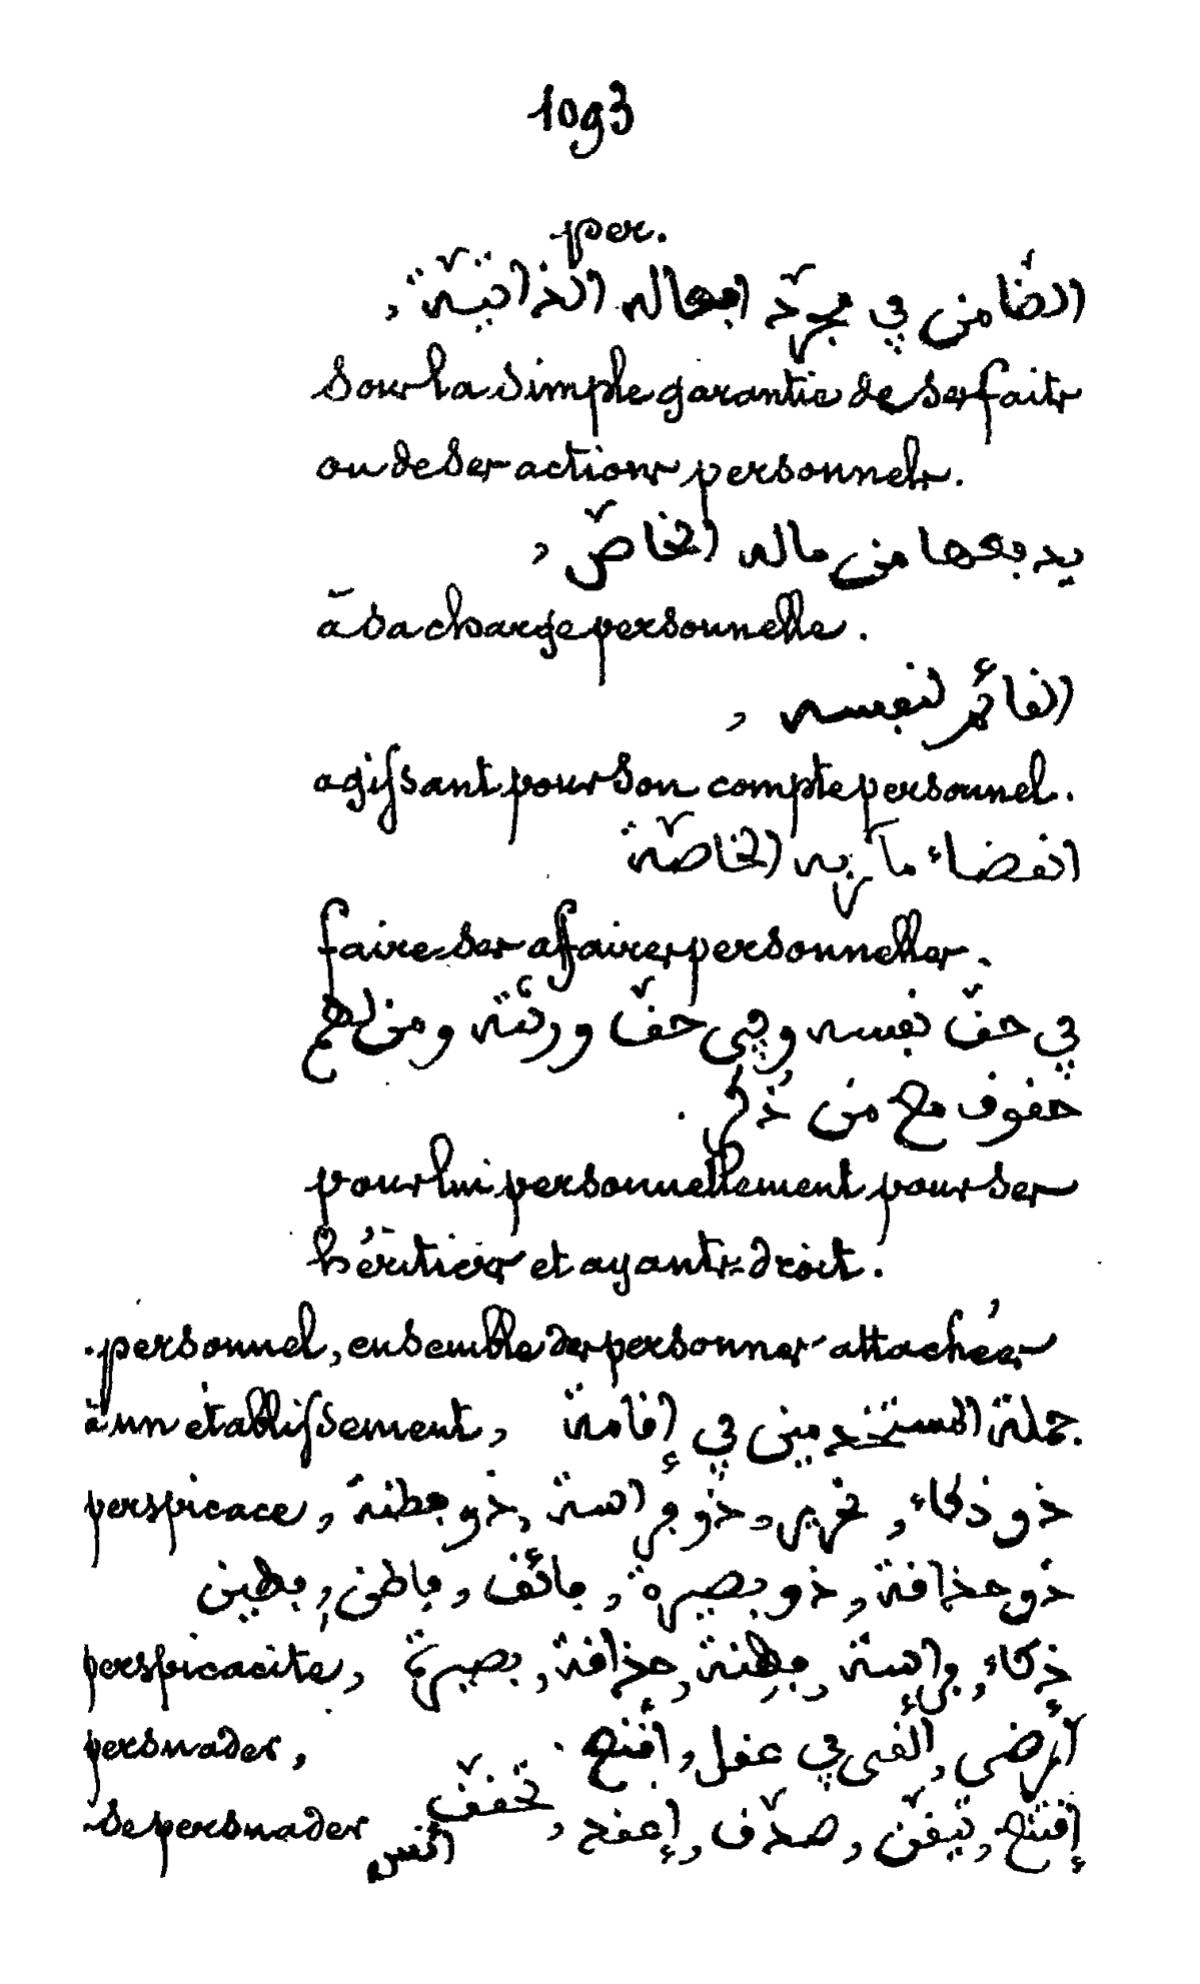 1093
per.
الضّامن في مجرّد افعاله الذاتيّة,
sous la simple garantie de ses faits
ou de ses actions personnels.
يدفعها من ماله الخاصّ,
à sa charge personnelle.
القائم لنفسه,
agissant pour son compte personnel.
انقضاء مآربه الخاصّة
faire ses affaires personnelles.
في حقّ نفسه وفي حقّ ورثته ومن لهم
حقوق مع من ذكر.
pour lui personnellement pour ses
héritiers et ayants-droit.
personnel, ensemble des personnes attachées
à un établissement, جملة المستخدمين في إقامة
perspicace, ذو ذكاء, نحرير, ذو فراسة, ذو فطنة
ذو حذاقة, ذو بصيرة, فائق, فاطن, فطين
perspicacité, ذكاء, فراسة, فطنة, حذاقة, بصيرة
persuader, أرضى, ألقى في عقل, اقنع.
se persuader إقتنع, تيقّن, صدّق, إعتقد, تحقّق